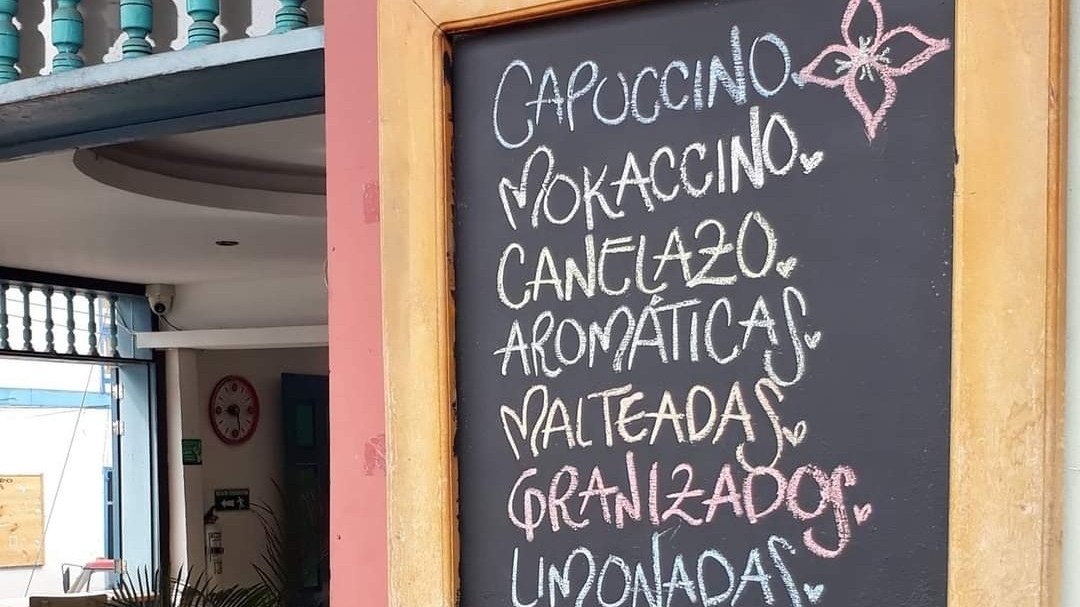 CAPUCCINO
MOKACCINO
CANELAZO
AROMÁTICAS
MALTEADAS
GRANIZADOS
LIMONADAS